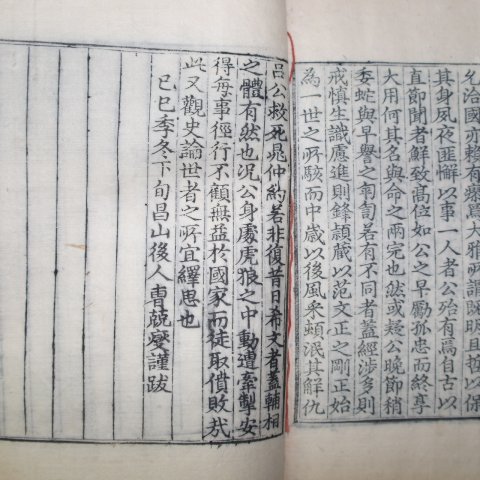 允治國亦賴有㷡爲大雅所謂旣明且哲以保
其身夙夜匪懈以事一人者公殆有焉自古以
直節聞者鮮致高位如公之早厲孤忠而終享
大用何其名與命之兩完也然或疑公晚節稍
委蛇與早譽之
若有不同者蓋經涉多則
戒愼生識慮進則鋒頴藏以范文正之剛正始
爲一世之所駭而中歲以後風采頓泯其解仇
呂公救死晁仲約若非復昔日希文者蓋輔相
之體有然也况公身處虎狼之中動遭牽掣安
得每事徑行不顧無益於國家而徒取僨敗㢤
此又觀史論世者之所宜繹思也
己巳季冬下旬昌山後人曺兢燮謹跋